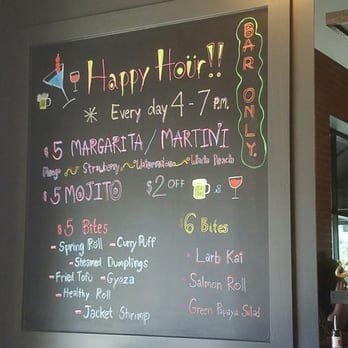 Happy Hour!!
Every day 4-7 P.M.
BAR ONLY.
$5 MARGARITA / MARTINI
Mango Strawberry Watermelon White Peach
$5 MOJITO $2 OFF &
$5 Bites
- Spring Roll - Curry Puff
- Steamed Dumplings
- Fried Tofu - Gyoza
- Healthy Roll
- Jacket Shrimp
$6 Bites
- Larb Kai
- Salmon Roll
- Green Papaya Salad